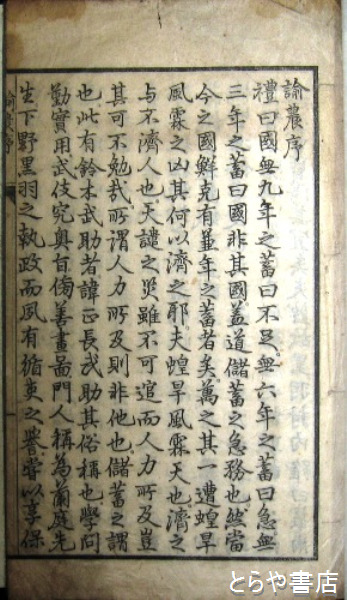 諭農序
禮曰國無九年之蓄曰不足無六年之蓄曰急無
三年之蓄曰國非其國蓋道儲蓄之急務也然當
今之國鮮克有並年之蓄者矣萬之其一遭蝗旱
風霖之凶其何以濟之耶夫蝗旱風霖天也濟之
与不濟人也天譴之災雖不可逭而人力所及豈
其可不勉哉所謂人力所及則非他也儲蓄之謂
也此有鈴木武助者諱正長武助其俗稱也學問
勤實用武伎究奧旨傍善畫啚門人稱為蘭庭先
生下野黑羽之執政而夙有循吏之譽嘗以享保
諭農序
とらや書店